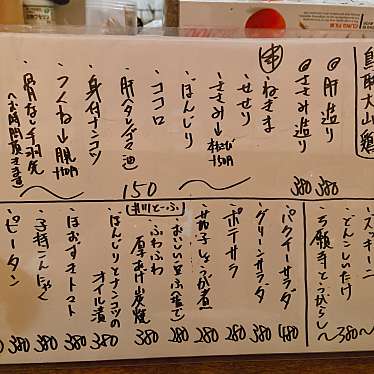 鳥取大山鶏
・肝造り 380
・ささみ造り 380
串
・ねぎま
・せせり
・ささみ→わさび +50円
・ぼんじり
・ココロ
・肝タレダク池
・身付ナンコツ
・つくね→脱 +10円
・骨なし手羽先
〜お時間頂きます
〜 150 〜
・ズッキーニ
・どんこしいたけ
・万願寺とうがらし
〜380〜
・パクチーサラダ 480
・グリーンサラダ 380
・ポテサラ 280
・茄子しょうが煮 280
(井川とーふ)
・おいしい豆ふ(釜で) 280
・ふわふわ厚あげ炭焼 380
・ぼんじりとナンコツのオイル漬 380
・ほおずきトマト 380
・子持こんにゃく 380
・ピータン